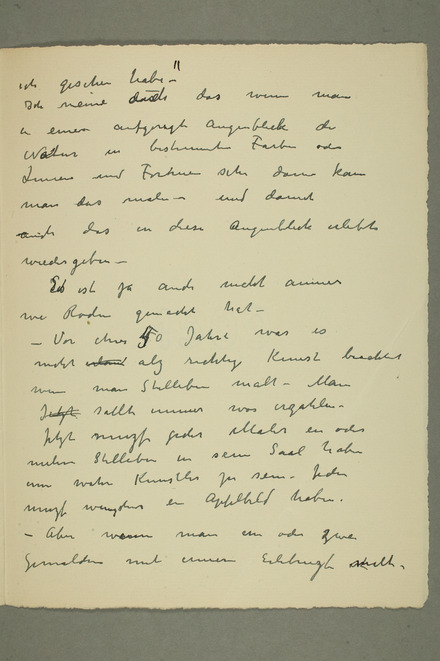 ich gesehen habe –"
Ich meine doch das wenn man
in einem aufgeregte Augenblick die
Natur in bestimmten Farben oder
und Formen sehe dann kann
man das malen und damit
auch das in diese Augenblick erlebte
wiedergeben –
Es ist ja auch nicht immer
wie Rodin gemacht hat –
– Vor etwa 50 Jahre war es
nicht als richtige Kunst brachtet
wenn man Stilleben malt – Man
Jetzt sollte immer was erzahlen –
Jetzt muszt jeder Maler ein oder
mehr Stilleben in sein Saal haben
um wahr Kunstler zu sein – Jeder
muszt wenigstens ein Apfelbild haben.
– Aber wenn man ein oder zwei
Gemalden mit einem